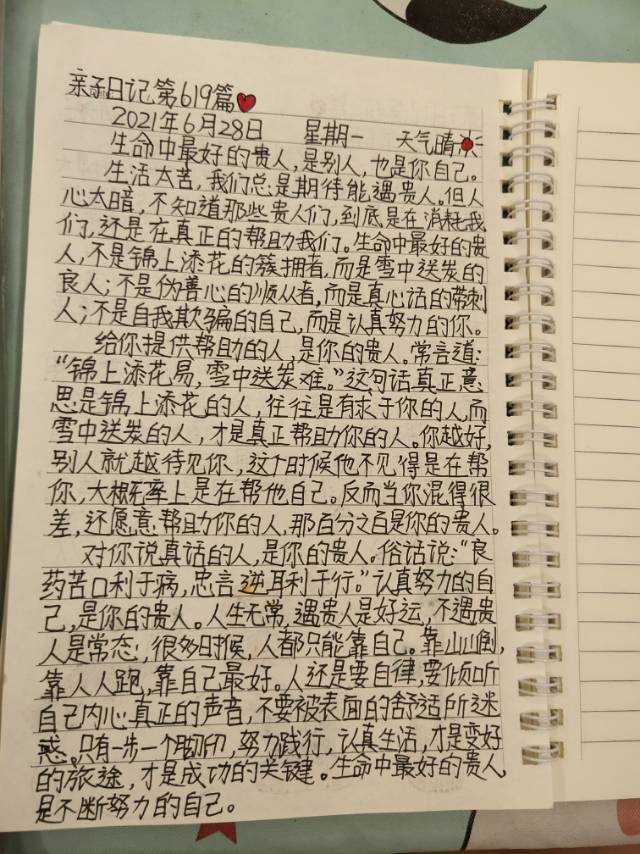 亲子日记第619篇
2021年6月28日 星期一 天气晴
生命中最好的贵人，是别人，也是你自己。
生活太苦，我们总是期待能遇贵人。但人
心太暗，不知道那些贵人们，到底是在消耗我
们，还是在真正的帮助我们。生命中最好的贵
人，不是锦上添花的簇拥者，而是雪中送炭的
良人；不是伪善心的顺从者，而是真心话的带刺
人；不是自我欺骗的自己，而是认真努力的你。
给你提供帮助的人，是你的贵人。常言道：
“锦上添花易，雪中送炭难。”这句话真正意
思是锦上添花的人，往往是有求于你的人，而
雪中送炭的人，才是真正帮助你的人。你越好，
别人就越待见你，这个时候他不见得是在帮
你，大概率上是在帮他自己。反而当你混得很
差，还愿意帮助你的人，那百分之百是你的贵人。
对你说真话的人，是你的贵人。俗话说：“良
药苦口利于病，忠言逆耳利于行。”认真努力的自
己，是你的贵人。人生无常，遇贵人是好运，不遇贵
人是常态，很多时候，人都只能靠自己。靠山山倒，
靠人人跑，靠自己最好。人还是要自律，要倾听
自己内心真正的声音，不要被表面的舒适所迷
惑。只有一步一个脚印，努力践行，认真生活，才是变好
的旅途，才是成功的关键。生命中最好的贵人，
是不断努力的自己。